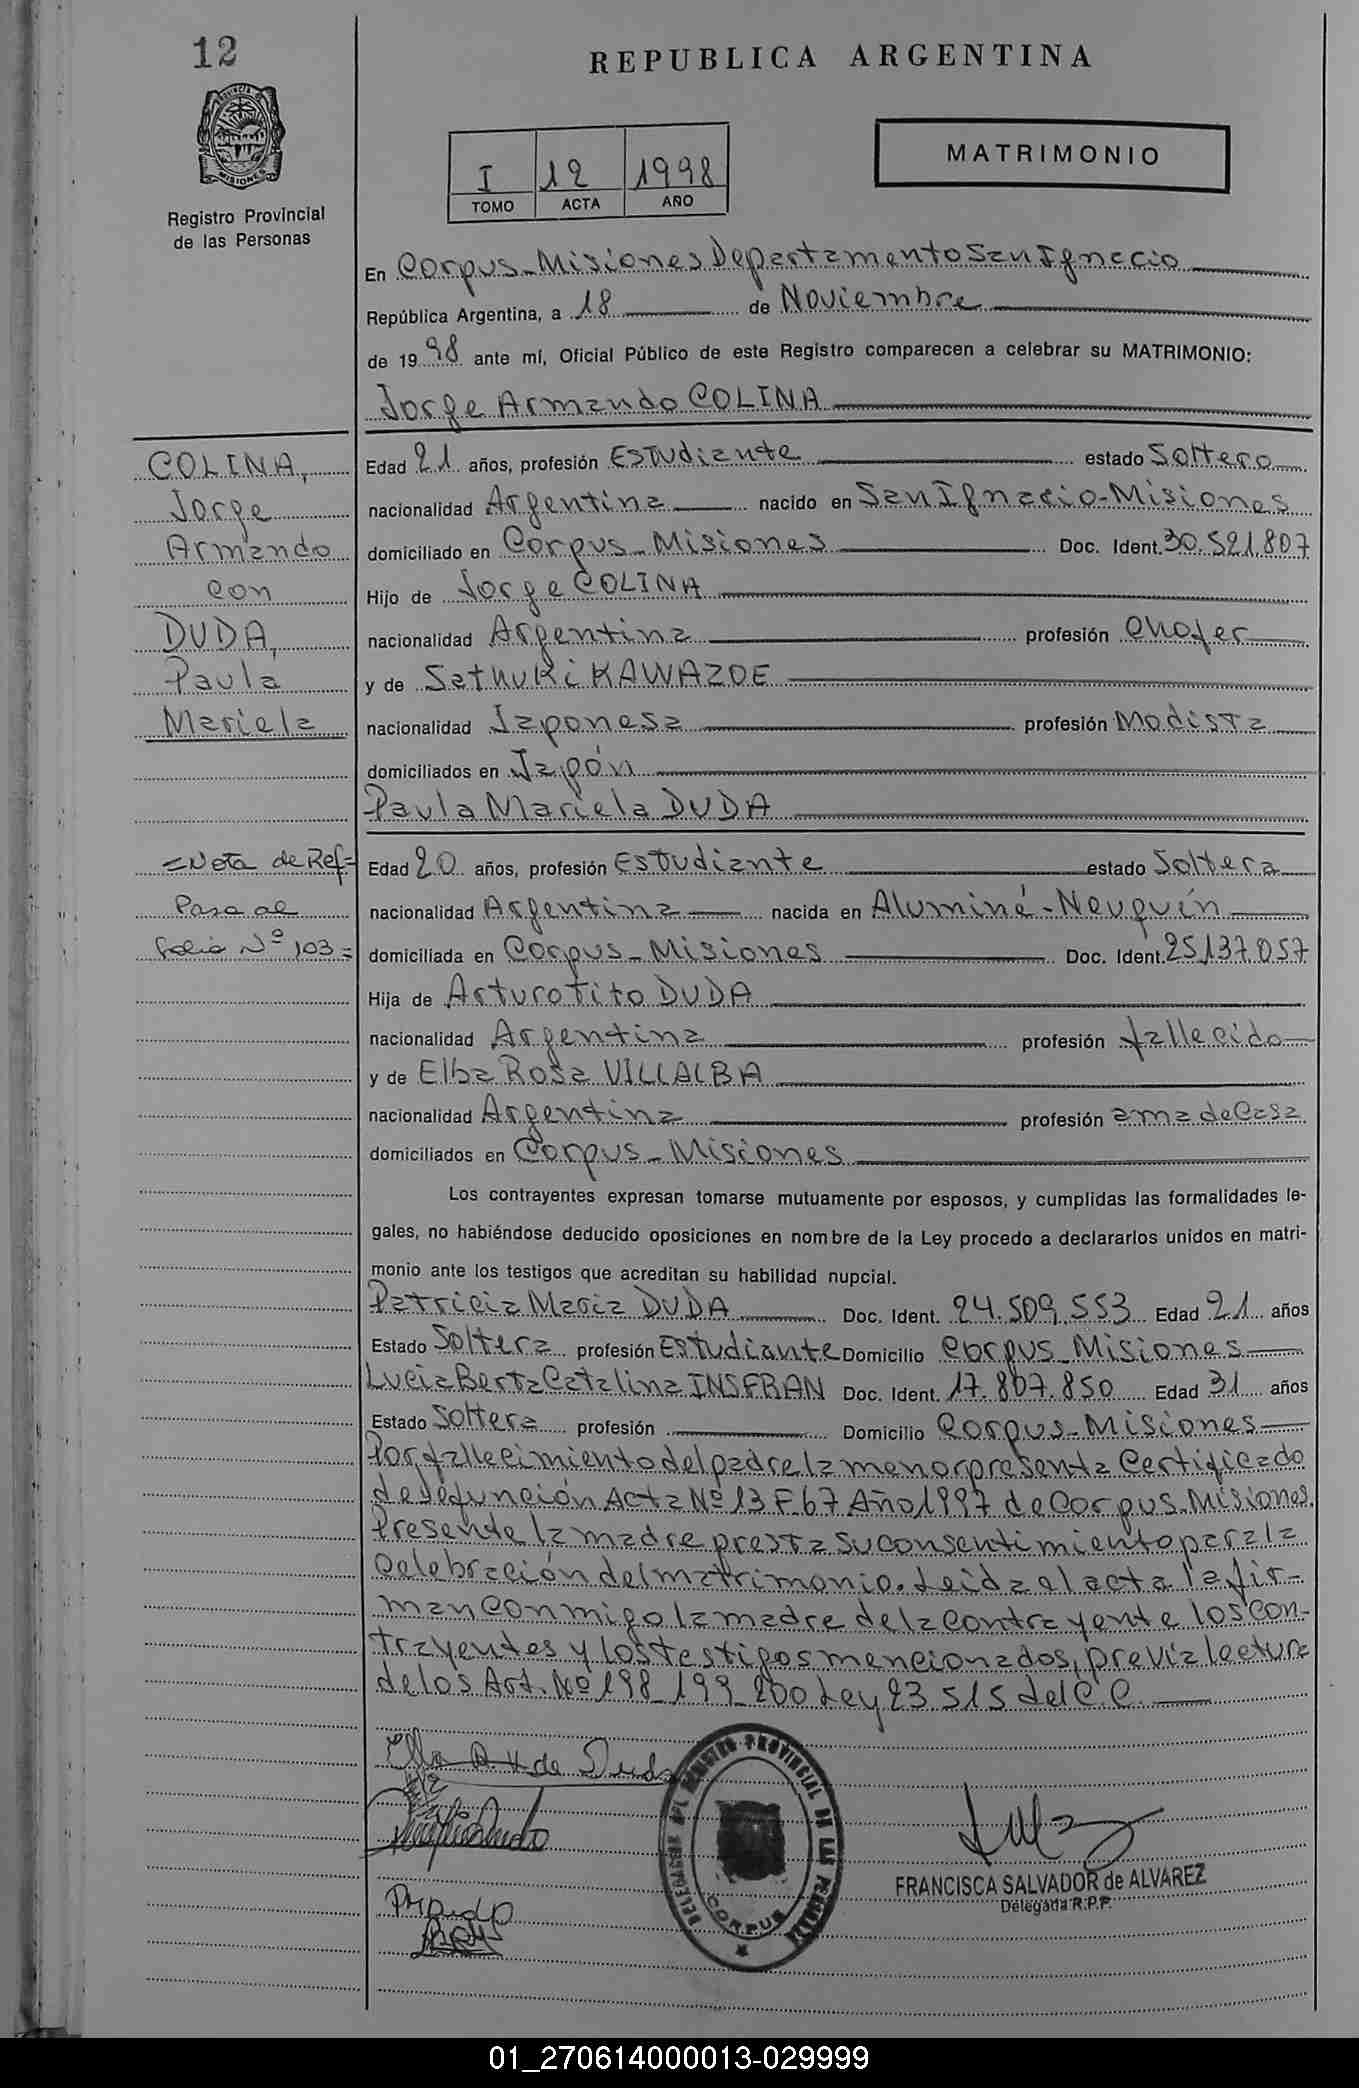 12
REPUBLICA ARGENTINA
PROVINCIA DE
MISIONES
Registro Provincial
de las Personas
I 12 1998
TOMO ACTA AÑO
MATRIMONIO
En Corpus-Misiones Departamento San Ignacio
República Argentina, a 18 de Noviembre
de 1998 ante mí, Oficial Público de este Registro comparecen a celebrar su MATRIMONIO:
Jorge Armando COLINA
COLINA,
Jorge
Armando
con
DUDA,
Paula
Mariela
Edad 21 años, profesión Estudiante estado Soltero
nacionalidad Argentina nacido en San Ignacio-Misiones
domiciliado en Corpus-Misiones Doc. Ident. 30.521.807
Hijo de Jorge COLINA
nacionalidad Argentina profesión Chofer
y de Sathuki KAWAZOE
nacionalidad Japonesa profesión Modista
domiciliados en Japón
Paula Mariela DUDA
=Nota de Ref=
Pasa al
folio Nº 103=
Edad 20 años, profesión Estudiante estado Soltera
nacionalidad Argentina nacida en Aluminé-Neuquín
domiciliada en Corpus-Misiones Doc. Ident. 25.137.057
Hija de Arturo Tito DUDA
nacionalidad Argentina profesión fallecido
y de Elba Rosa VILLALBA
nacionalidad Argentina profesión ama de Casa
domiciliados en Corpus-Misiones
Los contrayentes expresan tomarse mutuamente por esposos, y cumplidas las formalidades le-
gales, no habiéndose deducido oposiciones en nombre de la Ley procedo a declararlos unidos en matri-
monio ante los testigos que acreditan su habilidad nupcial.
Patricia Maria DUDA Doc. Ident. 24.509.553 Edad 21 años
Estado Soltera profesión Estudiante Domicilio Corpus-Misiones
Lucia Berta Catalina INSFRAN Doc. Ident. 17.807.850 Edad 31 años
Estado Soltera profesión Domicilio Corpus-Misiones
Por fallecimiento del padre la menor presenta Certificado
de defunción Acta Nº 13 F.67 Año 1997 de Corpus-Misiones.
Presente la madre presta su consentimiento para la
celebración del matrimonio. Leida el acta la fir-
man conmigo la madre de la contrayente los con-
trayentes y los testigos mencionados, previa lectura
de los Art. Nº 198-199-200 Ley 23.515 del C.C.
Elba R. V. de Duda
DELEGACION DEL REGISTRO PROVINCIAL DE LAS PERSONAS
CORPUS
FRANCISCA SALVADOR de ALVAREZ
Delegada R.P.P.
01_270614000013-029999